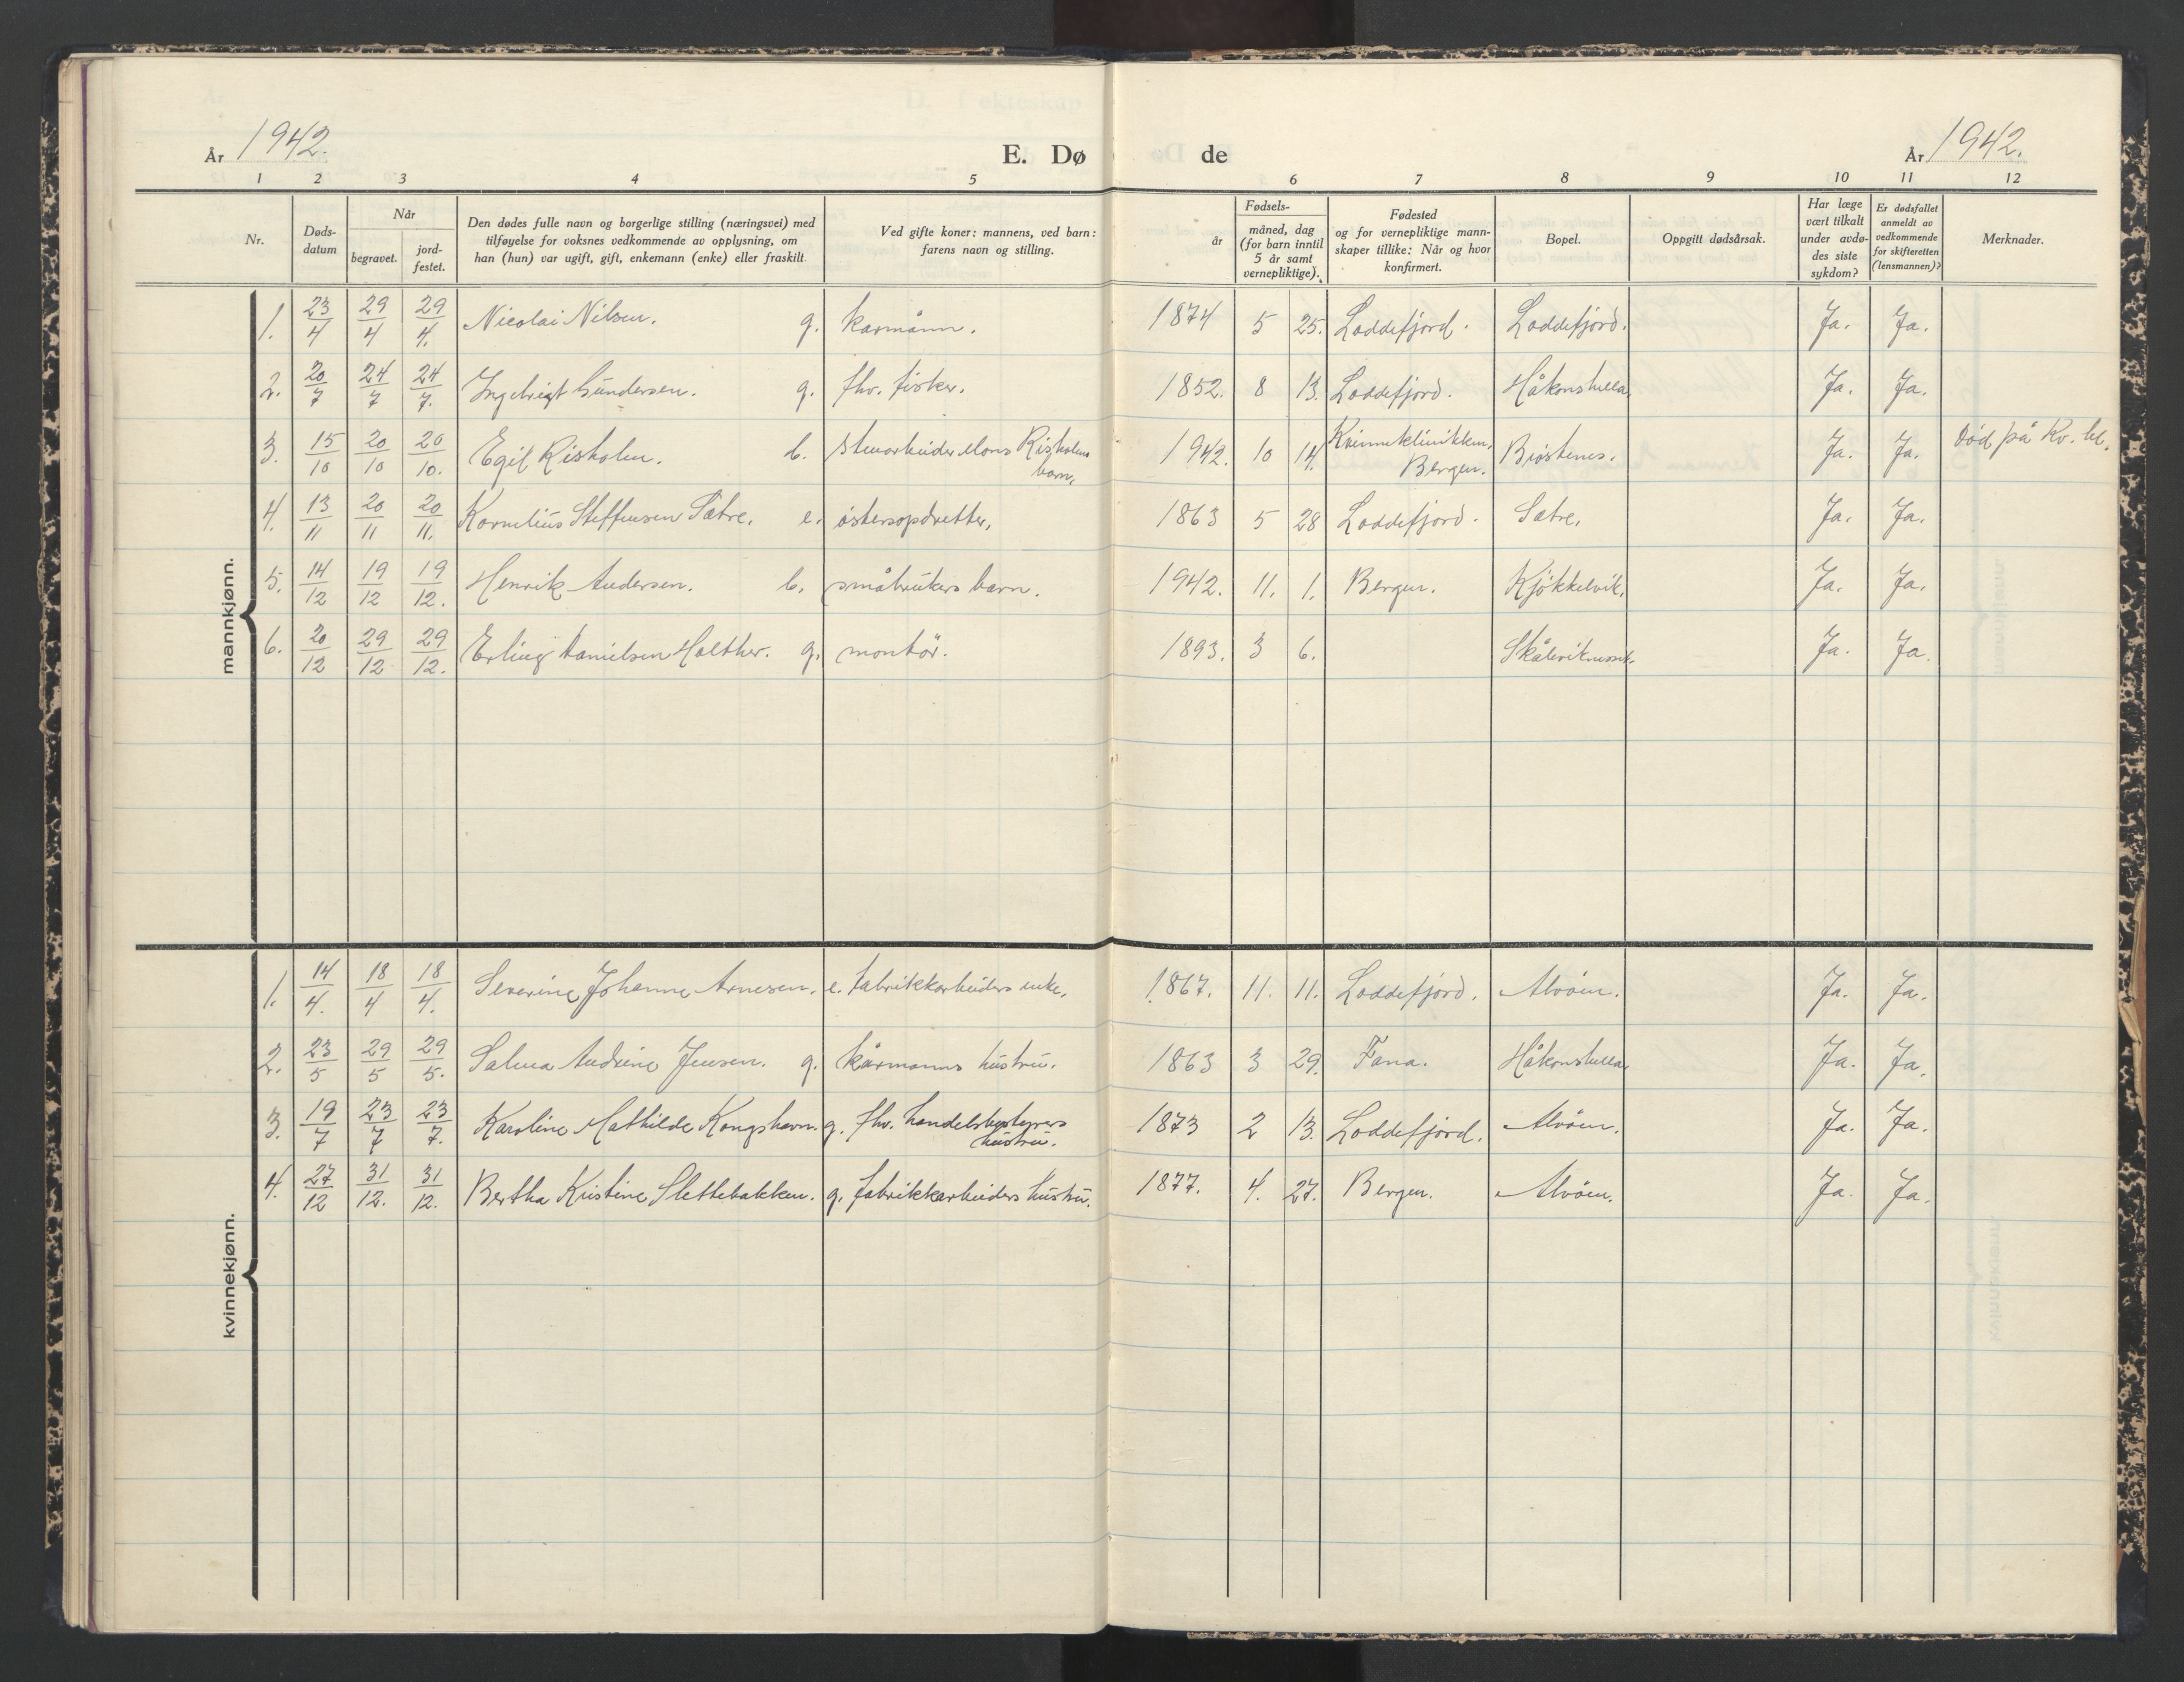 År 1942.
E. Dø
de
År 1942.
1 2 3 4 5 6 7 8 9 10 11 12
Nr.
Døds-
datum
Når
begravet.
jord-
festet.
Den dødes fulle navn og borgerlige stilling (næringsvei) med
tilføyelse for voksnes vedkommende av opplysning, om
han (hun) var ugift, gift, enkemann (enke) eller fraskilt
Ved gifte koner: mannens, ved barn:
farens navn og stilling.
Fødsels-
år
måned, dag
(for barn inntil
5 år samt
vernepliktige).
Fødested
og for vernepliktige mann-
skaper tillike: Når og hvor
konfirmert.
Bopel.
Oppgitt dødsårsak.
Har læge
vært tilkalt
under avdø-
des siste
sykdom?
Er dødsfallet
anmeldt av
vedkommende
for skifteretten
(lensmannen)?
Merknader.
mannkjønn.
1. 23/4 29/4 29/4. Nicolai Nilsen. g. kårmann. 1874 5 25. Loddefjord. Loddefjord. Ja. Ja.
2. 20/7 24/7 24/7. Ingebrigt Gundersen. g. fhv. fisker. 1852. 8 13. Loddefjord. Håkonshella. Ja. Ja.
3. 15/10 20/10 20/10. Egil Risholm. b. stenarbeider Mons Risholms
barn. 1942. 10 14. Kvinneklinikken,
Bergen. Brøstenes. Ja. Ja. Død på Kv. kl.
4. 13/11 20/11 20/11. Kornelius Steffensen Sætre. e. østersopdretter. 1863 5 28 Loddefjord. Sætre. Ja. Ja.
5. 14/12 19/12 19/12. Henrik Andersen. b. småbrukers barn. 1942. 11. 1. Bergen. Kjøkkelvik. Ja. Ja.
6. 20/12 29/12 29/12. Erling Danielsen Holther. g. montør. 1893. 3 6. Ja. Ja.
kvinnekjønn.
1. 14/4. 18/4 18/4. Severine Johanne Arnesen. e. fabrikkarbeiders enke. 1867. 11. 11. Loddefjord. Alvøen. Ja. Ja.
2. 23/5 29/5 29/5. Salma Andrine Jensen. g. kårmanns hustru. 1863 3 29. Fana. Håkonshella. Ja. Ja.
3. 19/7 23/7 23/7. Karoline Mathilde Kongshavn. g. fhv. handelsbestyrers
hustru. 1873 2 13. Loddefjord. Alvøen. Ja. Ja.
4. 27/12 31/12. 31/12. Bertha Kristine Slettebakken. g. fabrikkarbeiders hustru. 1877. 4. 27. Bergen. Alvøen. Ja. Ja.